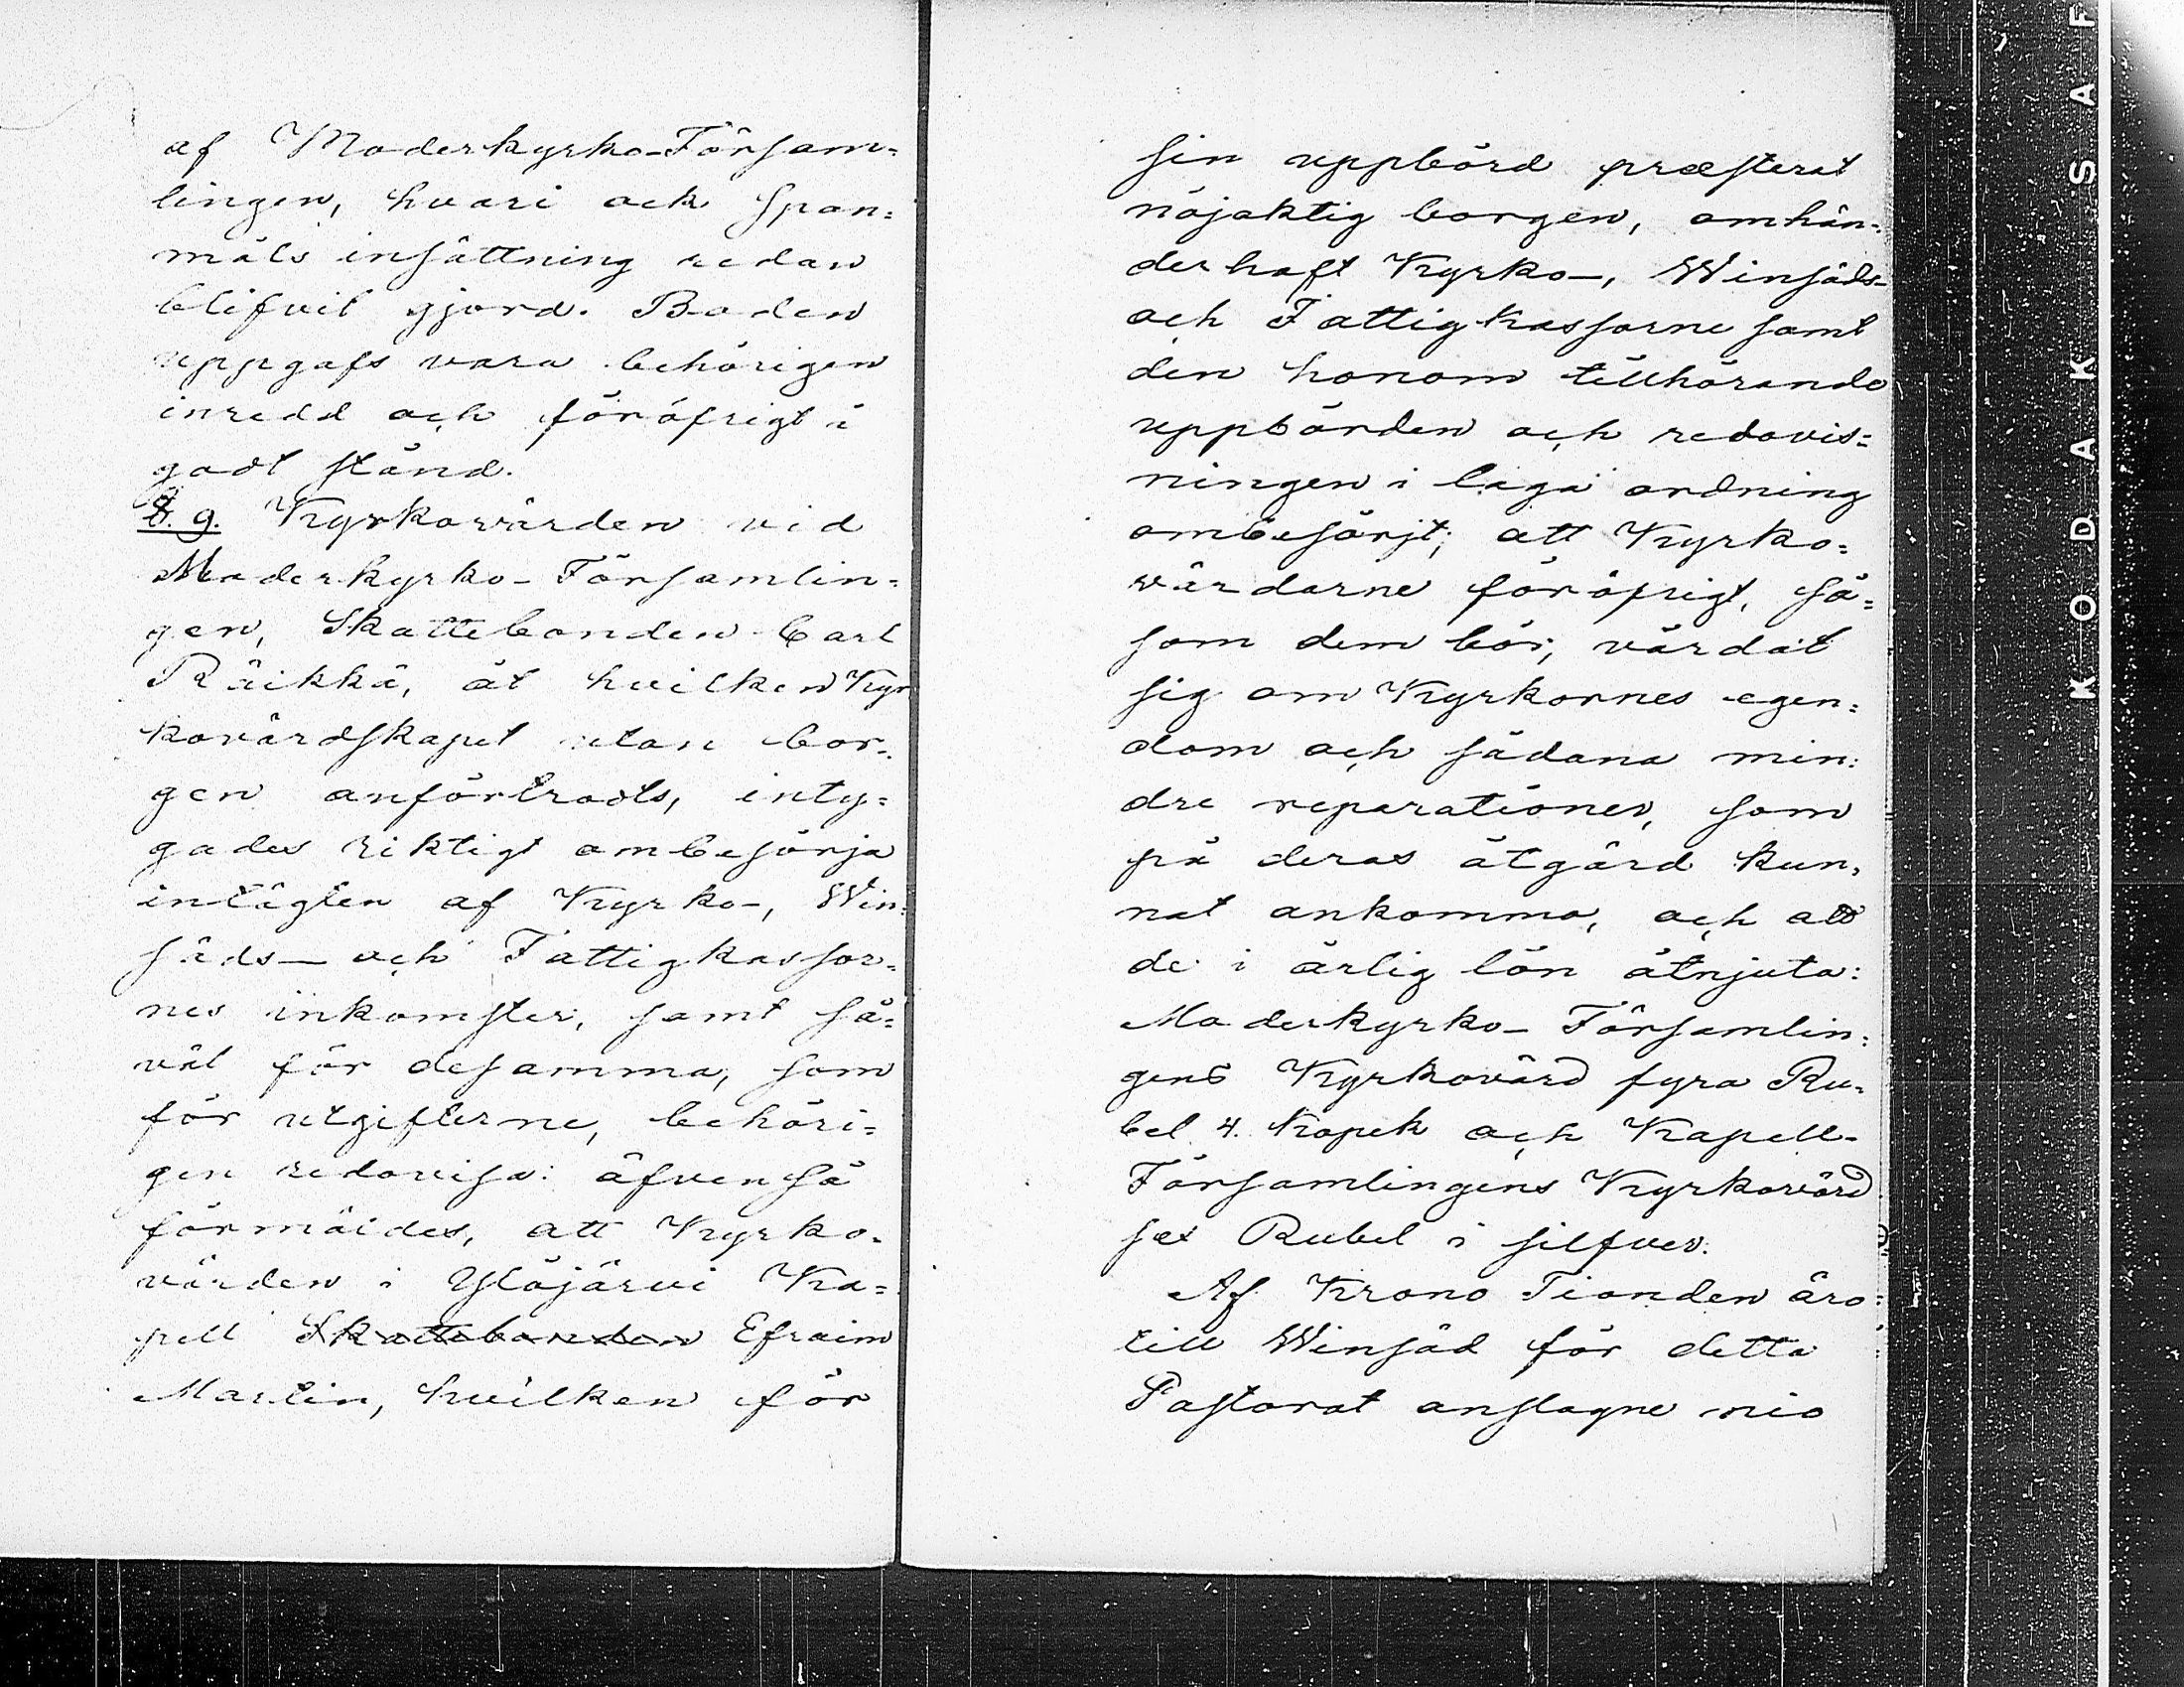 af Moderkyrko-Försam=
lingen, hvari ock Span=
måls insättning redan
blifvit gjord. Boden
uppgafs vara behörigen
inredd och föröfrigt i
godt stånd.
§. 9. Kyrkovärden vid
Moderkyrko-Församlin=
gen, Skattebonden Carl
Räikkä, åt hvilken Kyr
kovärdskapet utan bor=
gen anförtrodts, inty=
gades riktigt ombesörja
intägten af Kyrko-, Win=
säds- och Fattigkassor=
nes inkomster, samt så=
väl för desamma, som
för utgifterne, behöri=
gen redovisa: äfvenså
förmäldes, att Kyrko=
värden i Ylöjärvi Ka=
pell Skattebonden Efraim
Martin, hvilken för
sin uppbörd præsterat
nöjaktig borgen, omhän=
derhaft Kyrko-, Winsäds-
och Fattigkassorne samt
den honom tillhörande
uppbörden och redovis=
ningen i laga ordning
ombesörjt; att Kyrko=
värdarne föröfrigt, så=
som dem bör, vårdat
sig om Kyrkornes egen=
dom och sådana min=
dre reparationer, som
på deras åtgärd kun=
nat ankomma, och att
de i årlig lön åtnjuta:
Moderkyrko-Församlin=
gens Kyrkovärd fyra Ru=
bel 4. Kopek och Kapell-
Församlingens Kyrkovärd
sex Rubel i silfver.
Af Krono Tionden äro
till Winsäd för detta
Pastorat anslagne nio
KODAK SAF